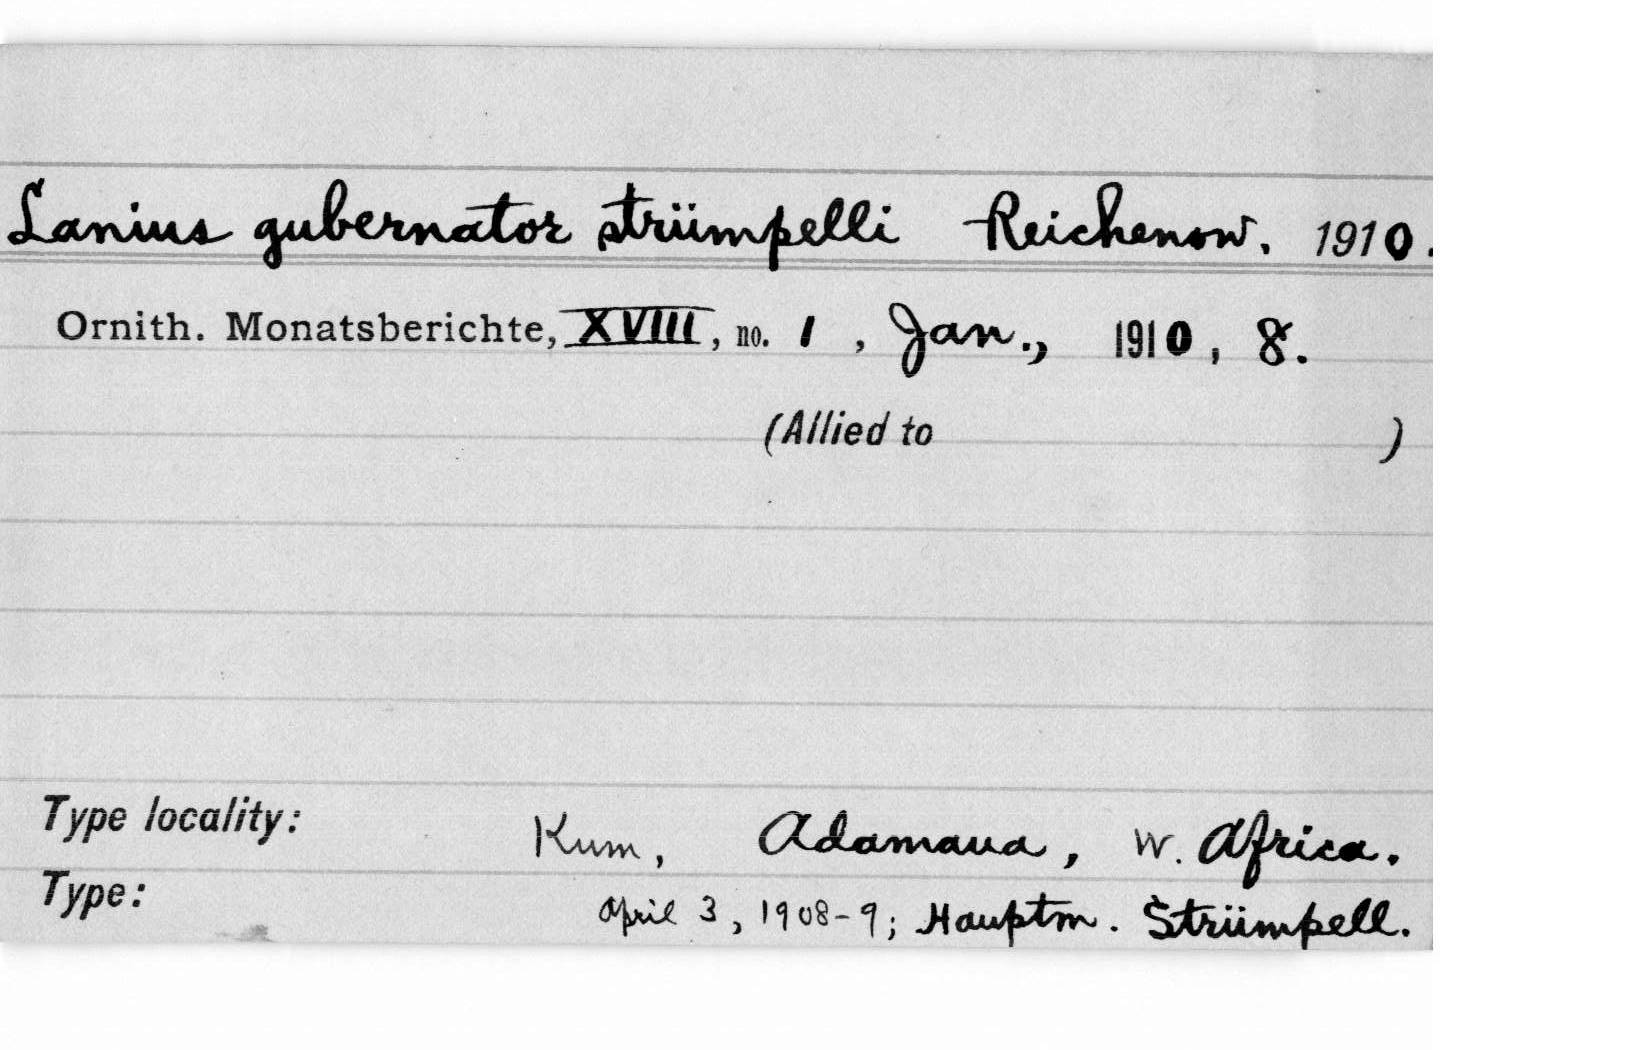 Lanius gubernator strümpelli Reichenow. 1910.
Ornith. Monatsberichte, XVIII, no. 1, Jan., 1910, 8.
(Allied to )
Type locality: Kum, Adamaua, W. Africa.
Type: April 3, 1908-9; Hauptm. Strümpell.